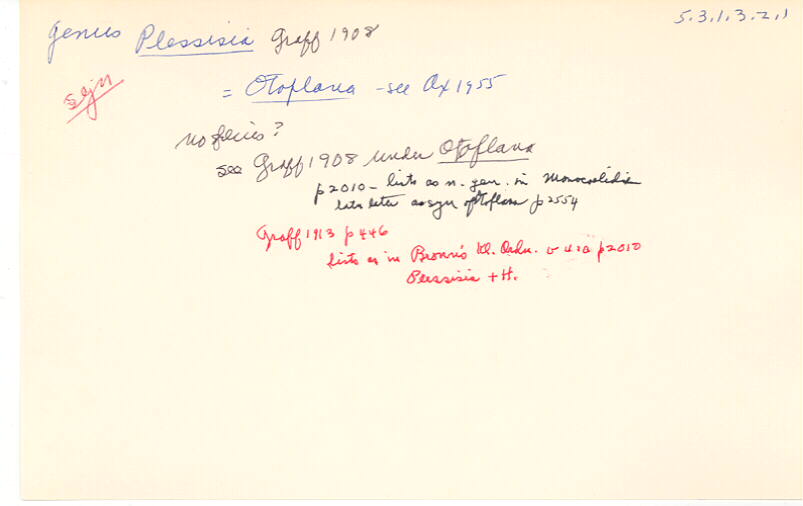 5.3.1.3.2.1
Genus Plessisia Graff 1908
syn
= Otoplana - see Ax 1955
no species?
see Graff 1908 under Otoplana
p 2010 - lists as n. gen. in Monocoelididae
later as syn of Otoplana p 2554
Graff 1913 p 446
lists as in Bronn's Kl. Ordn. v 4 : a p 2010
Plessisia + H.